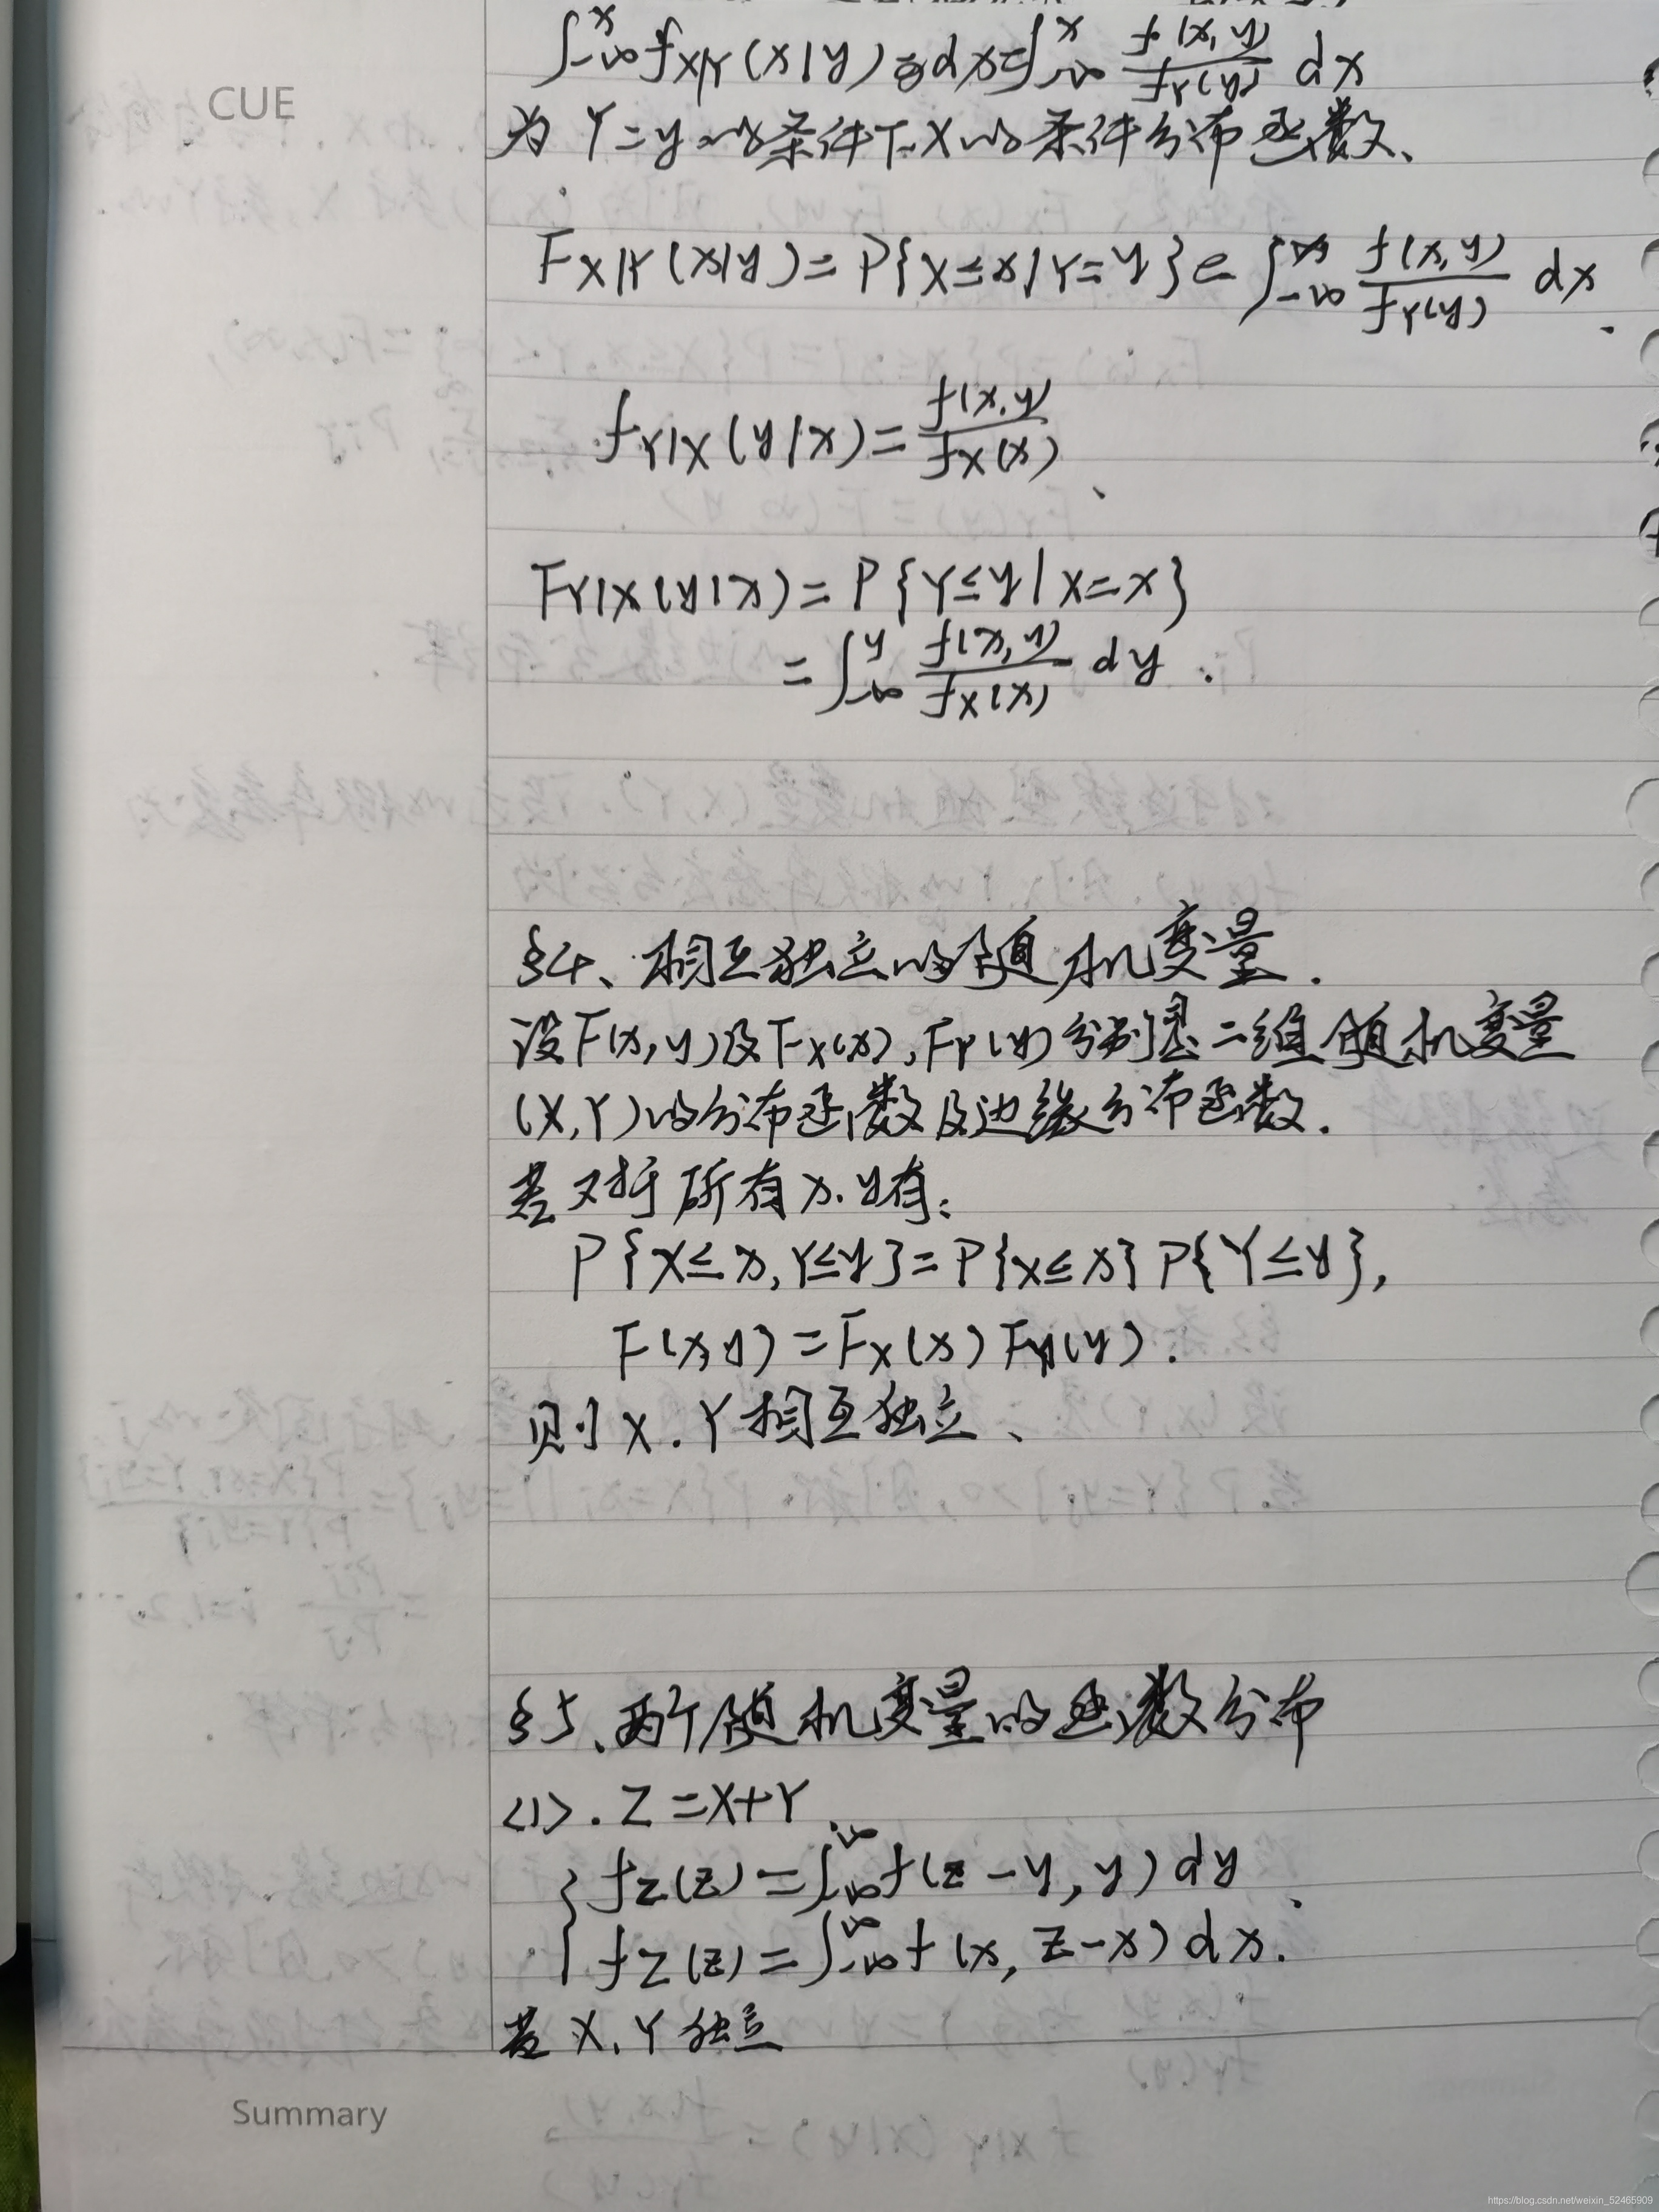 ∫_{-∞}^{x} f_{X|Y}(x|y) dx = ∫_{-∞}^{x} f(x,y)/f_Y(y) dx
CUE
为 Y=y 的条件下 X 的条件分布函数、
F_{X|Y}(x|y) = P{X≤x|Y=y} = ∫_{-∞}^{x} f(x,y)/f_Y(y) dx.
f_{Y|X}(y|x) = f(x,y)/f_X(x)、
F_{Y|X}(y|x) = P{Y≤y|X=x}
= ∫_{-∞}^{y} f(x,y)/f_X(x) dy.
§4、相互独立的随机变量.
设F(x,y)及F_X(x),F_Y(y)分别是二维随机变量
(X,Y)的分布函数及边缘分布函数.
若对于所有x.y有:
P{X≤x,Y≤y}=P{X≤x}P{Y≤y},
F(x,y)=F_X(x)F_Y(y).
则X.Y相互独立、
§5、两个随机变量的函数分布
<1>. Z=X+Y.
{ f_Z(z)=∫_{-∞}^{∞} f(z-y,y)dy.
f_Z(z)=∫_{-∞}^{∞} f(x,z-x)dx.
若X,Y独立
Summary
https://blog.csdn.net/weixin_52465909